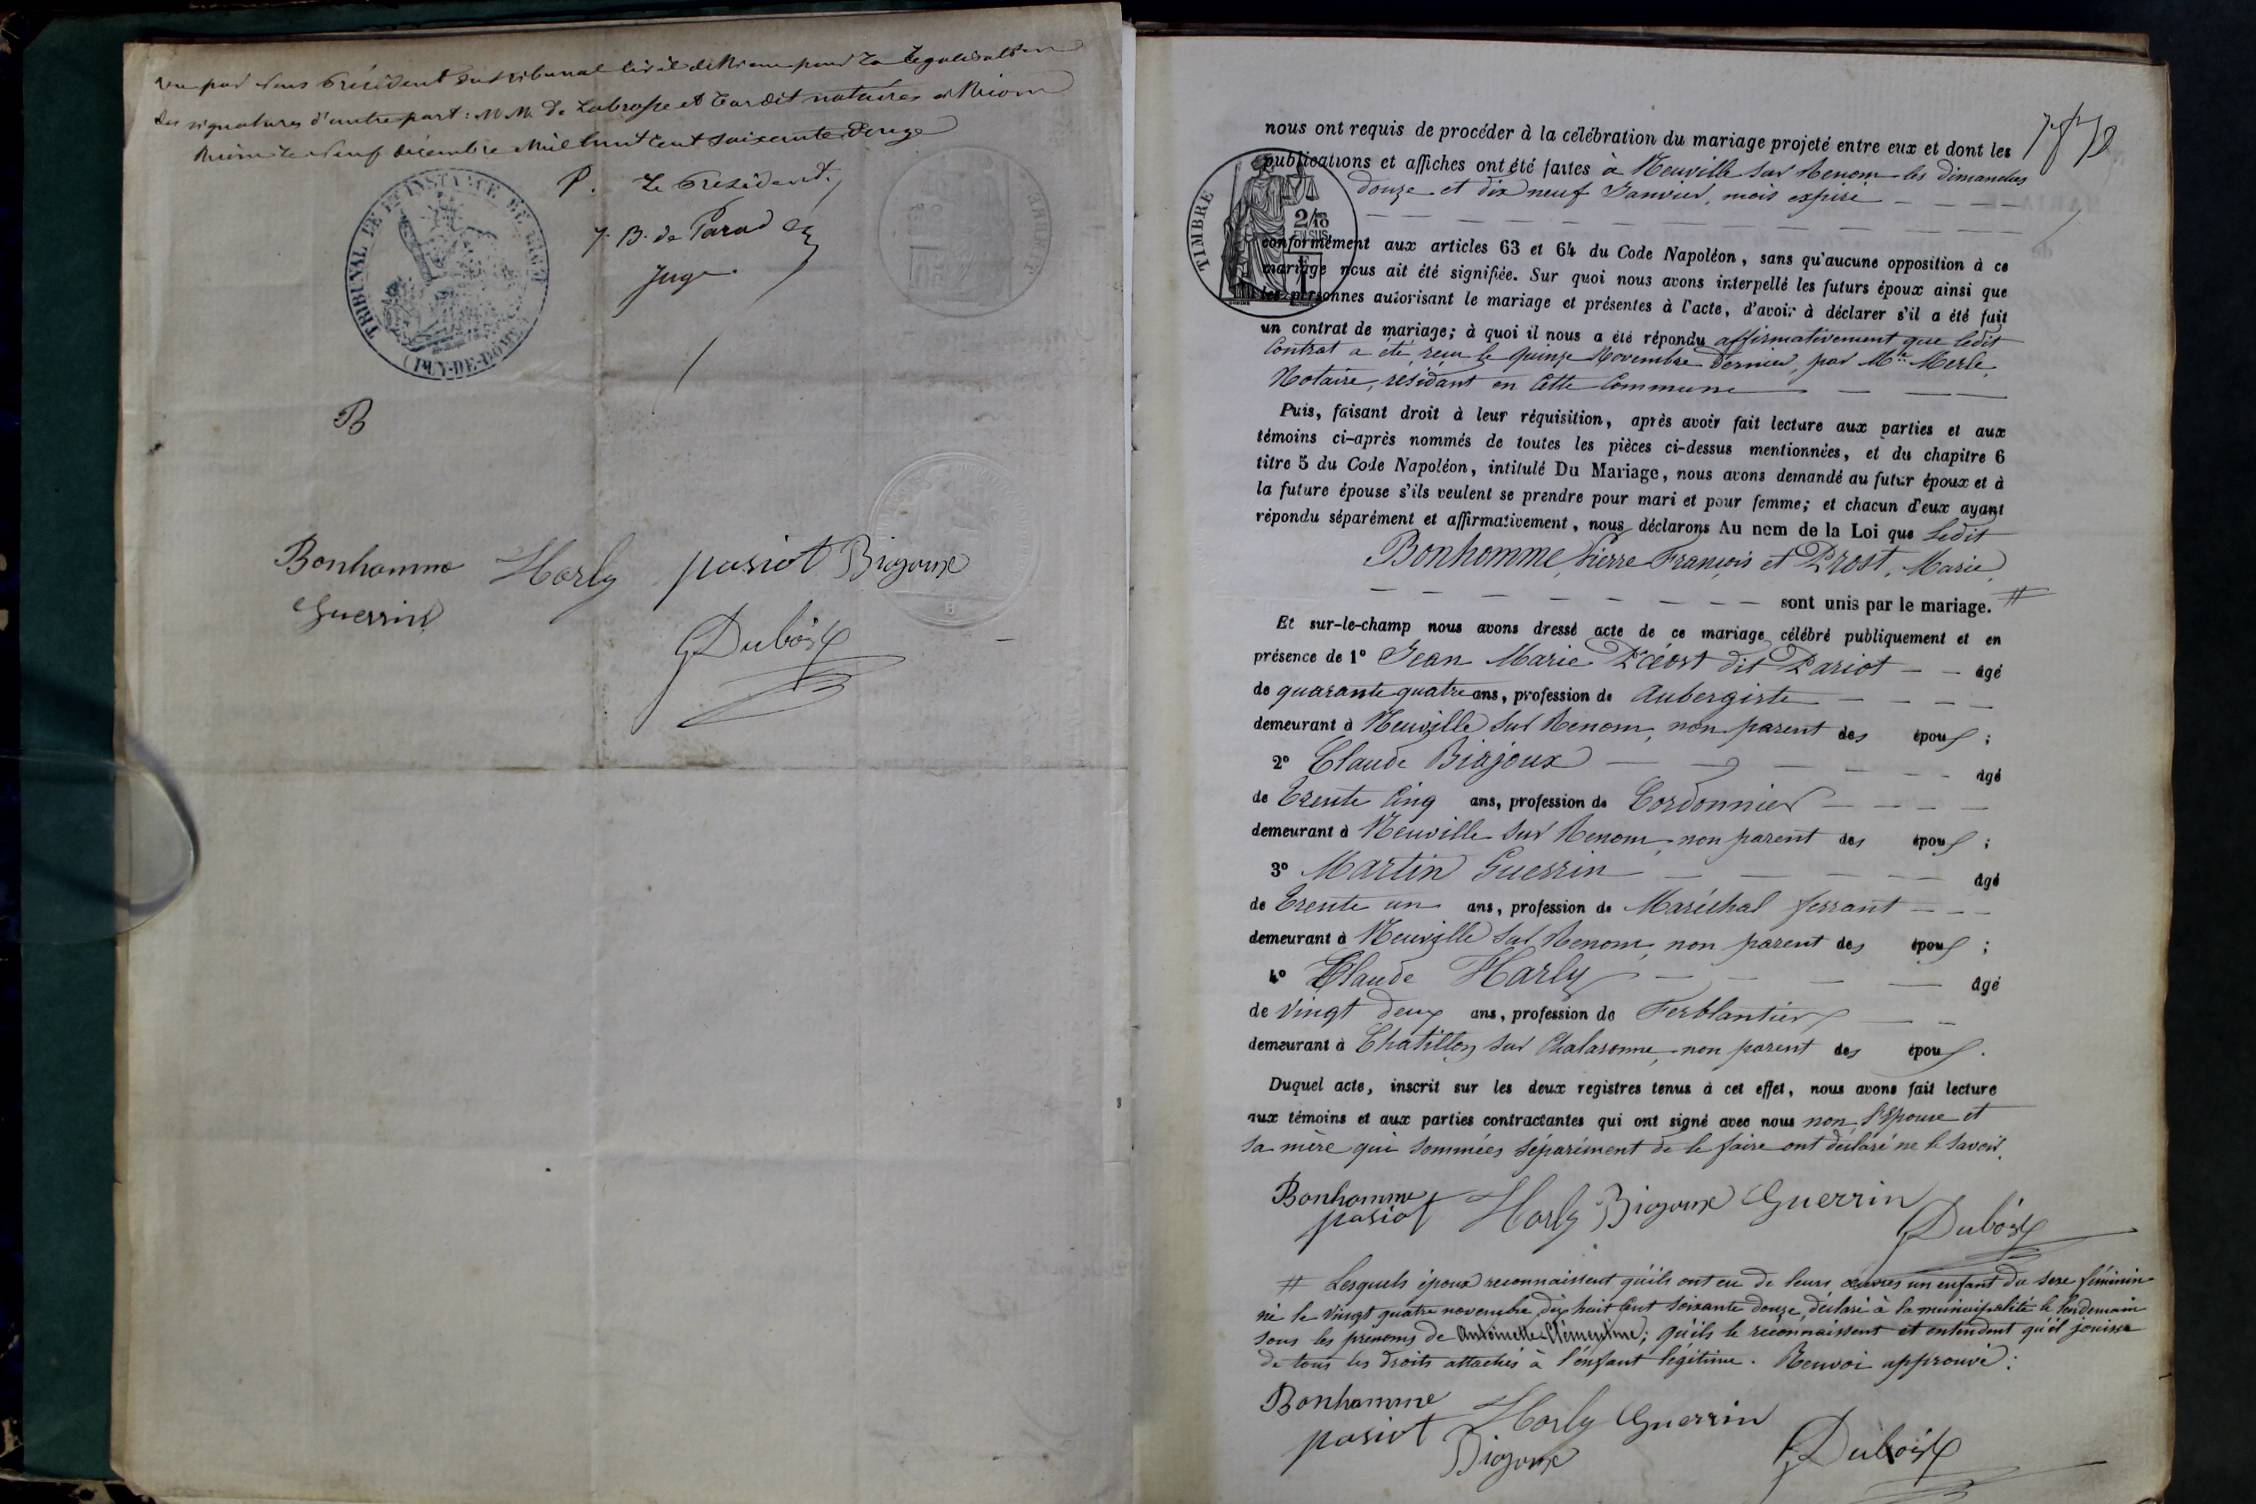 Vu par nous Président du tribunal Civil de Riom pour la légalisation
des signatures d'autre part : M M. de Labrosse et Tardit notaires à Riom
Riom le neuf décembre Mil huit Cent soixante Douze
P. Le Président,
J. B. de Parad
Juge.
TRIBUNAL DE 1re INSTANCE DE RIOM
(PUY-DE-DÔME)
B
Bonhomme Harly pariot Biajoux
Guerrin
Dubost
nous ont requis de procéder à la célébration du mariage projeté entre eux et dont les
publications et affiches ont été faites à Neuville sur Renom les dimanches
douze et dix neuf Janvier, mois expiré
TIMBRE
2/10
EN SUS
conformément aux articles 63 et 64 du Code Napoléon, sans qu'aucune opposition à ce
mariage nous ait été signifiée. Sur quoi nous avons interpellé les futurs époux ainsi que
les personnes autorisant le mariage et présentes à l'acte, d'avoir à déclarer s'il a été fait
un contrat de mariage; à quoi il nous a été répondu affirmativement que ledit
Contrat a été reçu le quinze Novembre dernier, par Mtre Merle,
Notaire, résidant en Cette Commune
Puis, faisant droit à leur réquisition, après avoir fait lecture aux parties et aux
témoins ci-après nommés de toutes les pièces ci-dessus mentionnées, et du chapitre 6
titre 5 du Code Napoléon, intitulé Du Mariage, nous avons demandé au futur époux et à
la future épouse s'ils veulent se prendre pour mari et pour femme; et chacun d'eux ayant
répondu séparément et affirmativement, nous déclarons Au nom de la Loi que Ledit
Bonhomme, Pierre François et Prost, Marie,
sont unis par le mariage. #
Et sur-le-champ nous avons dressé acte de ce mariage célébré publiquement et en
présence de 1° Jean Marie Préost dit Pariot âgé
de quarante quatre ans, profession de Aubergiste
demeurant à Neuville sur Renom, non parent des époux ;
2° Claude Biajoux âgé
de Trente Cinq ans, profession de Cordonnier
demeurant à Neuville sur Renom, non parent des époux ;
3° Martin Guerrin âgé
de Trente un ans, profession de Maréchal ferrant
demeurant à Neuville sur Renom, non parent des époux ;
4° Claude Harly âgé
de Vingt deux ans, profession de Ferblantier
demeurant à Chatillon sur Chalaronne, non parent des époux.
Duquel acte, inscrit sur les deux registres tenus à cet effet, nous avons fait lecture
aux témoins et aux parties contractantes qui ont signé avec nous non l'Epouse et
sa mère qui sommées séparément de le faire ont déclaré ne le savoir.
Bonhomme Harly Biajoux Guerrin
pariot Dubost
# Lesquels époux reconnaissent qu'ils ont eu de leurs œuvres un enfant du sexe féminin
né le vingt quatre novembre dix huit Cent soixante douze, déclaré à la municipalité le lendemain
sous les prénoms de Antoinette Clémentine; qu'ils le reconnaissent et entendent qu'il jouisse
de tous les droits attachés à l'enfant légitime. Renvoi approuvé :
Bonhomme Harly Guerrin
pariot Biajoux Dubost